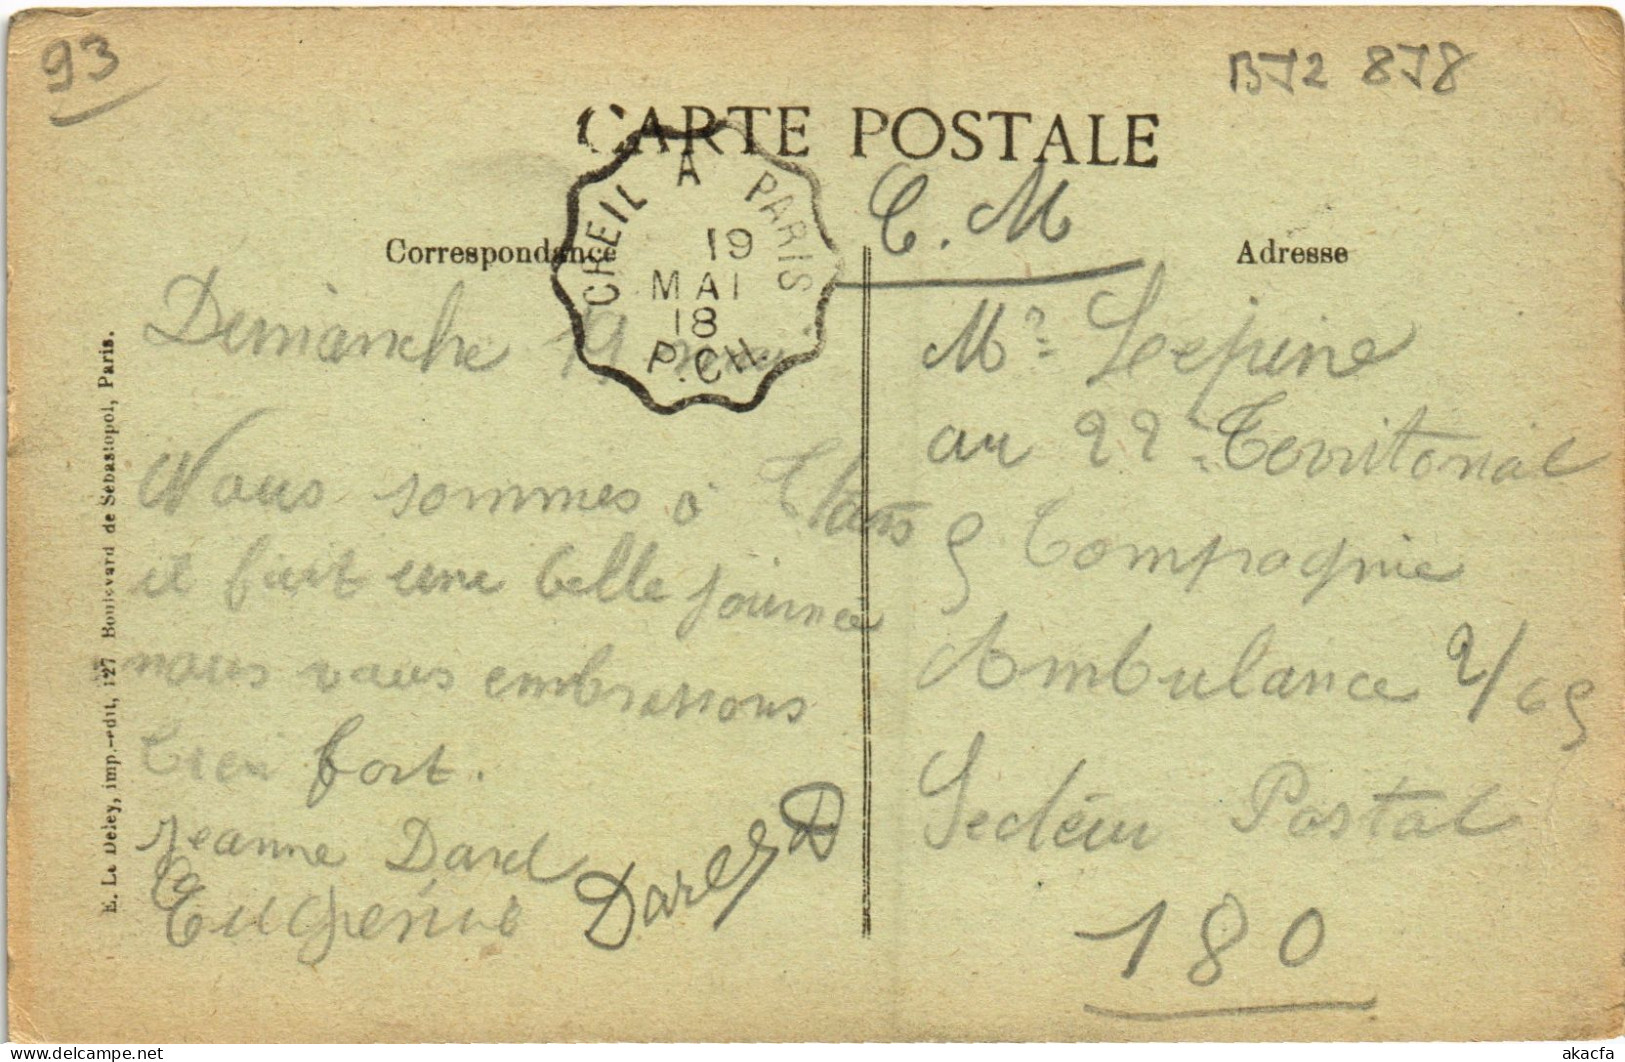 93
BJ2 878
CARTE POSTALE
CREIL A PARIS
19
MAI
18
P.CH.
C. M
Correspondance
Adresse
Dimanche 19 mai
Nous sommes à
il fait une belle journée
nous vous embrassons
bien fort.
Jeanne Dard
Eugénie Dard
Mr Lepine
au 22e Territorial
9 Compagnie
Ambulance 2/69
Secteur Postal
180
E. Le Deley, imp.-edit, 127 Boulevard de Sébastopol, Paris.
akacfa